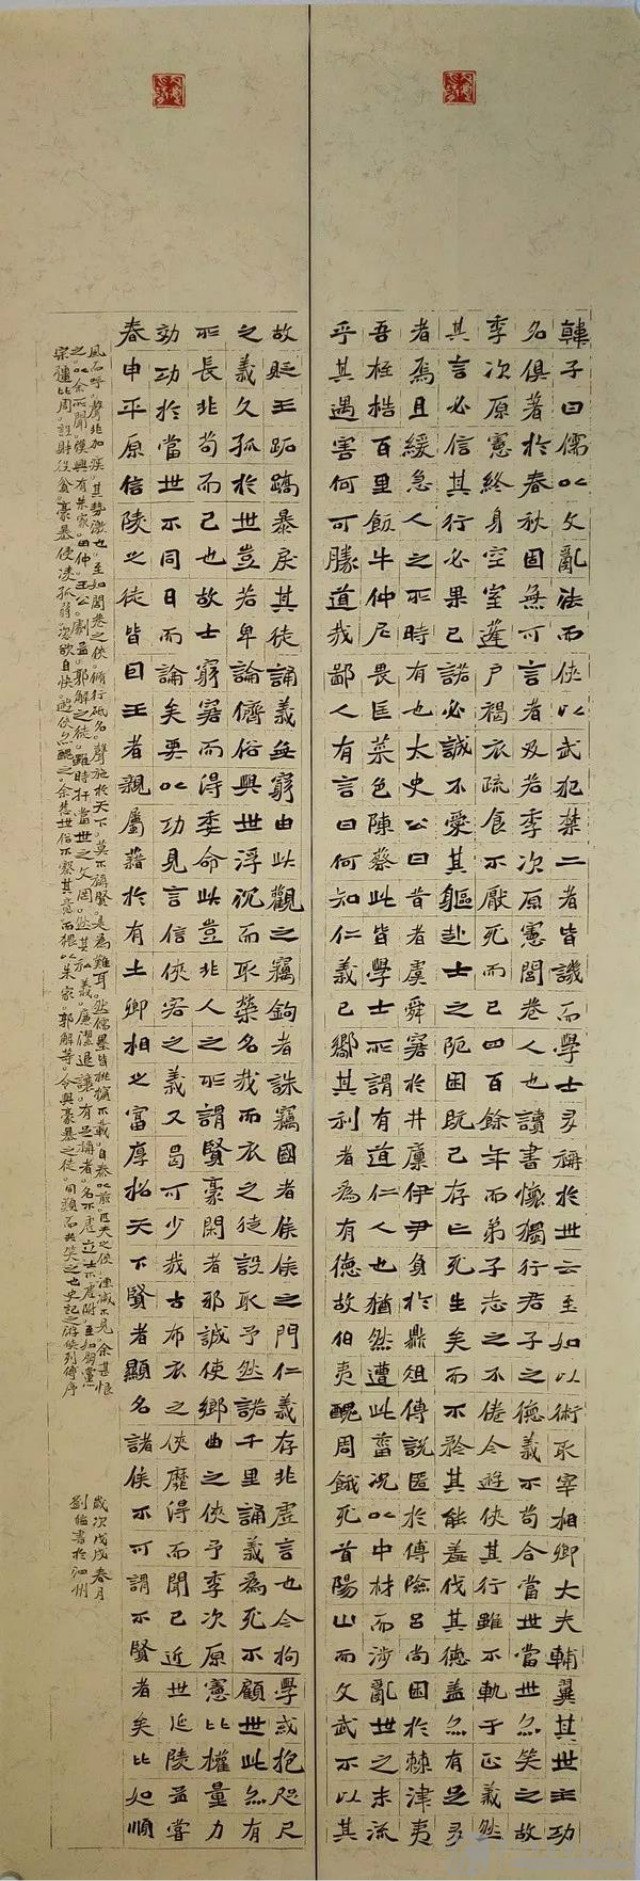 韓子曰儒以文亂法而俠以武犯禁二者皆譏而學士多稱於世云至如以術取宰相卿大夫輔翼其世主功
名俱著於春秋固無可言者及若季次原憲閭巷人也讀書懷獨行君子之德義不苟合當世當世亦笑之故
季次原憲終身空室蓬戶褐衣疏食不厭死而已四百餘年而弟子志之不倦今遊俠其行雖不軌于正義然
其言必信其行必果已諾必誠不愛其軀赴士之阨困既已存亡死生矣而不矜其能羞伐其德蓋亦有足多
者焉且緩急人之所時有也太史公曰昔者虞舜窘於井廩伊尹負於鼎俎傅說匿於傅險呂尚困於棘津夷
吾桎梏百里飯牛仲尼畏匡菜色陳蔡此皆學士所謂有道仁人也猶然遭此菑況以中材而涉亂世之末流
乎其遇害何可勝道哉鄙人有言曰何知仁義已嚮其利者為有德故伯夷醜周餓死首陽山而文武不以其
故貶王跖蹻暴戾其徒誦義無窮由此觀之竊鉤者誅竊國者侯侯之門仁義存非虛言也今拘學或抱咫尺
之義久孤於世豈若卑論儕俗與世浮沉而取榮名哉而衣之徒設取予然諾千里誦義為死不顧世此亦有
所長非苟而已也故士窮窘而得委命此豈非人之所謂賢豪閒者邪誠使鄉曲之俠予季次原憲比權量力
効功於當世不同日而論矣要以功見言信俠客之義又曷可少哉古布衣之俠靡得而聞已近世延陵孟嘗
春申平原信陵之徒皆因王者親屬藉於有土卿相之富厚招天下賢者顯名諸侯不可謂不賢者矣比如順
風而呼。聲非加疾。其勢激也。至如閭巷之俠。脩行砥名。聲施於天下。莫不稱賢。是為難耳。然儒墨皆排擯不載。自秦以前。匹夫之俠。湮滅不見。余甚恨
之。以余所聞。漢興有朱家。田仲。王公。劇孟。郭解之徒。雖時扞當世之文罔。然其私義。廉潔退讓。有足稱者。名不虛立。士不虛附。至如朋黨
宗彊比周。設財役貧。豪暴侵凌孤弱。恣欲自快。遊俠亦醜之。余悲世俗不察其意。而猥以朱家。郭解等。令與豪暴之徒。同類而共笑之也。史記之游俠列傳序
歲次戊戌春月
劉倫書於泗州